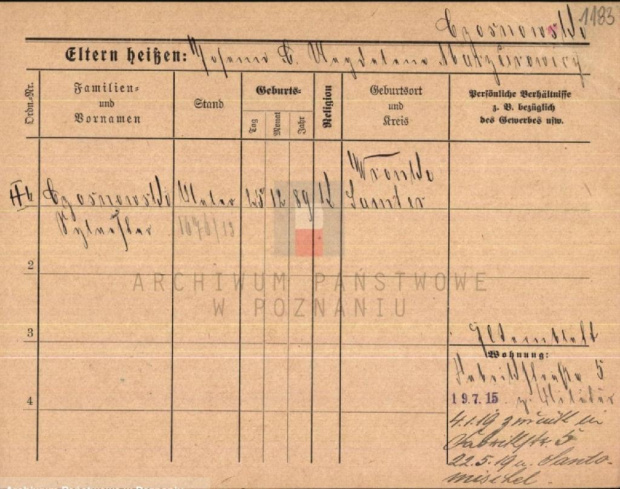 Czosnowski 1183
Eltern heißen: Johann & Magdalena
Ordn.-Nr.
Familien-
und
Vornamen
Stand
Geburts-
Tag
Monat
Jahr
Religion
Geburtsort
und
Kreis
Persönliche Verhältnisse
z. B. bezüglich
des Gewerbes usw.
Wronke
Czosnowski Maler 25 12 89 K Samter
Sylvester
2
ARCHIWUM PAŃSTWOWE
W POZNANIU
3
Wohnung:
Fabrikstraße 5
4
19.7.15 z. Militär
4.1.19 zurück in
Fabrikstr 5
22.5.19 n. Santo-
mischel.
Archiwum Państwowe Poznaniu